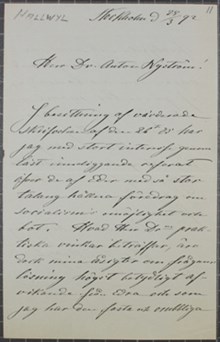 HALLWYL
Stockholm d 28/3 92
Herr Dr. Anton Nyström!
I besittning af värderade
skrifvelsen af den 26 ds har
jag med stort intresse genom
läst innliggande referat
öfver de af Eder med så stor
talang hållna föredrag om
socialismens möjlighet och
hot. Hvad Herr Drns prak-
tiska vinkar beträffar, äro
dock mina åsigter om frågans
lösning högst betydligt af-
vikande från Edra och som
jag har den fasta